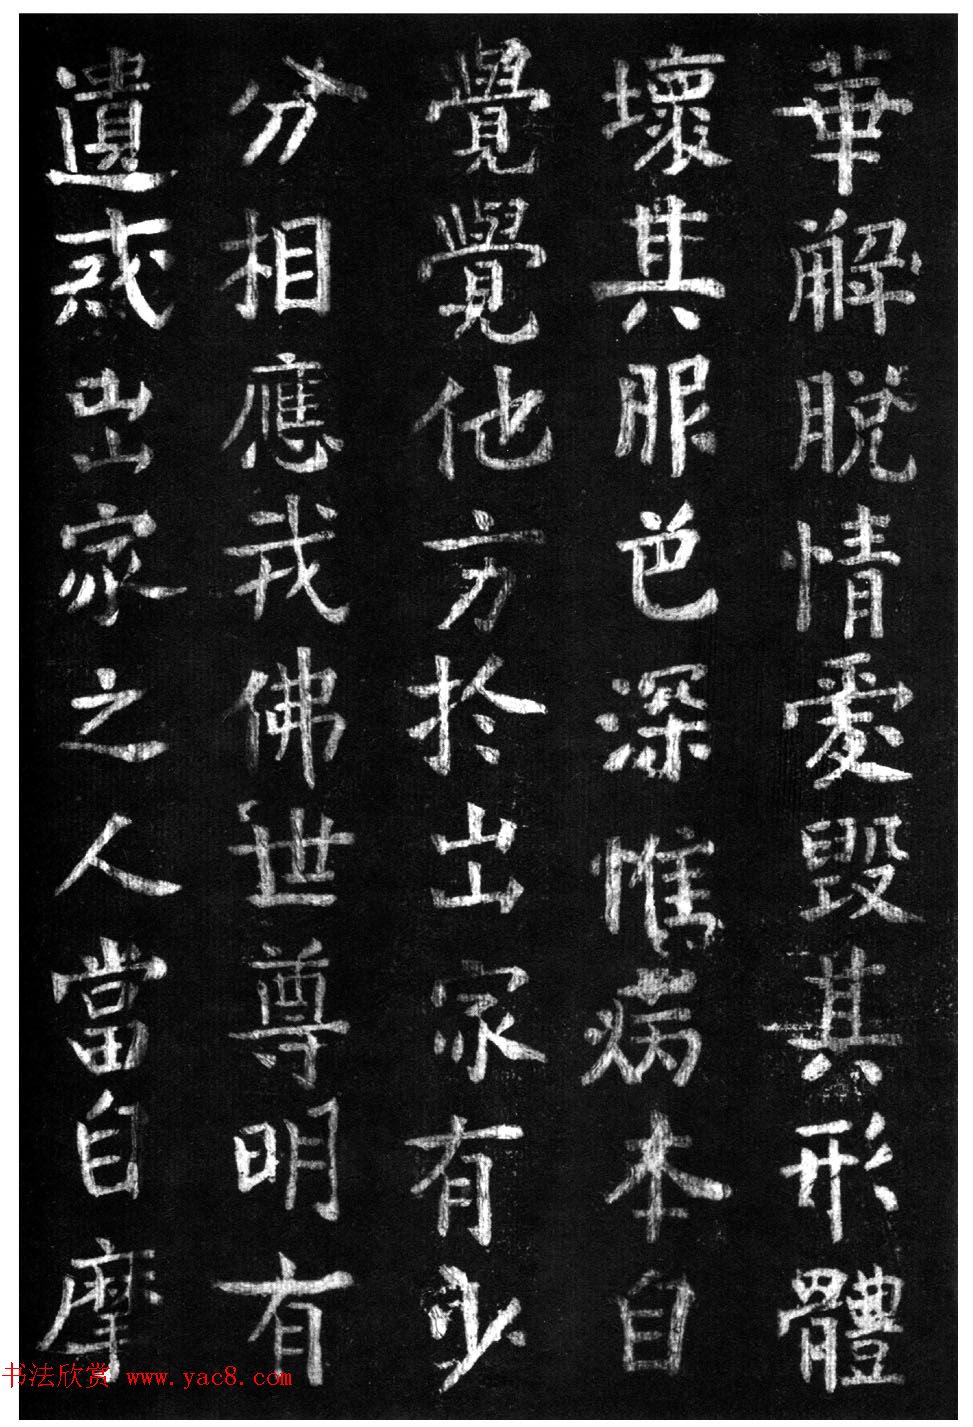 華解脫情愛毀其形體
壞其服色深惟病本自
覺覺他方於出家有少
分相應我佛世尊明有
遺戒出家之人當自摩
书法欣赏 www.yac8.com